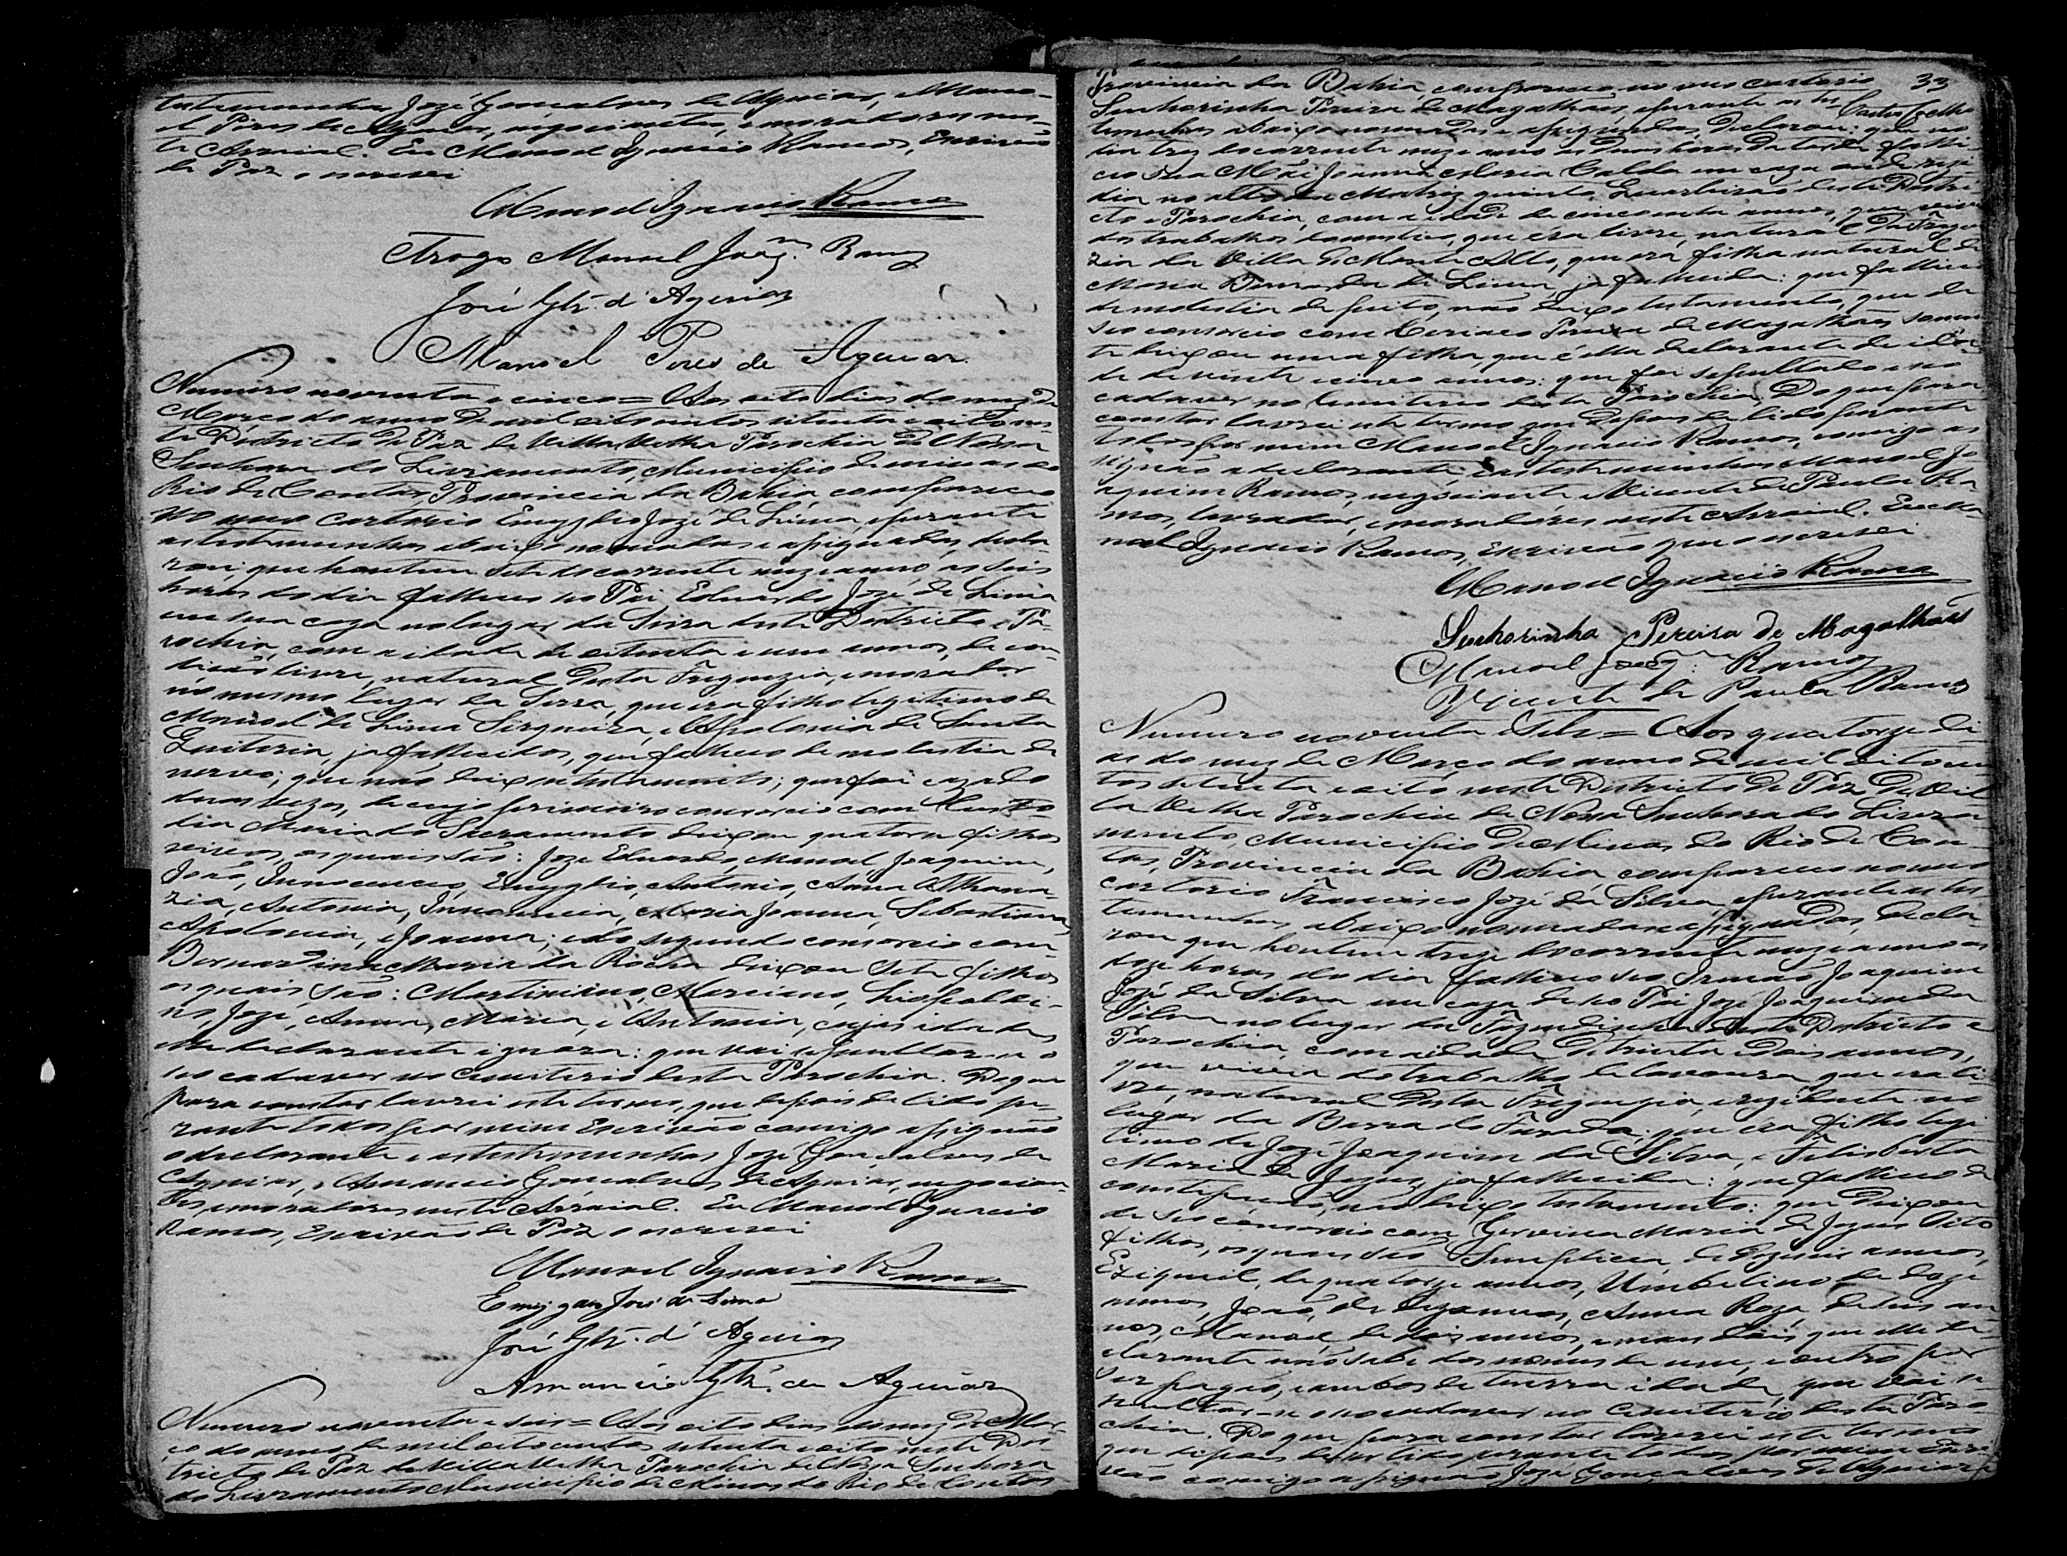 testemunhas José Gonçalves de Aguiar, e Mano-
el Pires de Aguiar, negociantes, e moradores nes-
te Arraial. Eu Manoel Ignacio Ramos, Escrivão
de Paz o escrevi
Manoel Ignacio Ramos
Arogo Manoel Joaqm. Ramos
José Glz. d' Aguiar
Manoel Pires de Aguiar
Numero noventa e cinco = Aos oito dias do mez de
Março do anno de mil oito centos setenta e oito nes-
te Districto de Paz de Villa Velha Parochia de Nossa
Senhora do Livramento, Municipio de Minas do
Rio de Contas, Provincia da Bahia, compareceo
no meo cartorio Emygdio José de Lima, e perante
as testemunhas abaixo nomeadas e assignadas, decla-
rou: que hontem sete do corrente mez e anno, as seis
horas do dia falleceo seo Pai Eduardo José de Lima
em sua caza no lugar da Serra deste Districto e Pa-
rochia, com a idade de oitenta e um annos, de con-
dicão livre, natural desta Freguezia, e morador
no mesmo lugar da Serra, que era filho legitimo de
Manoel de Lima Sirqueira, e Apolonia de Santa
Quiteria, ja fallecidos, que falleceo de molestia de
nervo; que não deixou testamento; que foi cazado
duas vezes, de cujo primeiro consorcio com Custo-
dia Maria do Sacramento deixou quatorze filhos
os quais são: José Eduardo, Manoel Joaquim,
João, Innocencio, Emygdio, Antonio, Anna Athana-
zia, Antonia, Innocencia, Maria Joanna, Sebastiana,
Apolonia, e Joanna; e do segundo consorcio com
Bernardina Maria da Rocha deixou sete filhos
os quais são: Martiniano, Marciano,
José, Anna, Maria, e Antonia, cujas idades
elle declarante ignora: que vai sepultar-se o
seo cadaver no Cemiterio desta Parochia. Do que
para constar lavrei este termo, que depois de lido pe-
rante todos por mim Escrivão comigo assignão
o declarante e as testemunhas José Gonçalves de
Aguiar, e Amancio Gonçalves de Aguiar, negocian-
tes, e moradores neste Arraial. Eu Manoel Ignacio
Ramos, Escrivão de Paz o escrevi
Manoel Ignacio Ramos
Emygdio José de Lima
José Glz. d' Aguiar
Amancio Glz. de Aguiar
Numero noventa e seis = Aos oito dias do mez de Mar-
ço do anno de mil oito centos setenta e oito neste Dis-
tricto de Paz de Villa Velha Parochia de Nossa Senhora
do Livramento Municipio de Minas do Rio de Contas
33
Provincia da Bahia compareceo no meo cartorio
Senhorinha Pereira de Magalhães, e perante as tes
temunhas abaixo nomeadas e assignadas, declarou: que no
dia tres do corrente mez e anno as duas horas da tarde falle-
ceo sua Mãi Joanna Maria Calda em caza onde rezi-
dia no alto da Matriz quinto Quarteirão deste Distri-
cto e Parochia, com a idade de cincoenta annos, que vivia
dos trabalhos domestico, que era livre, natural da Fregue-
zia da Villa de Monte Alto, que era filha natural de
Maria Bernarda de Lima, ja fallecida: que falleceo
de molestia de peito, não deixou testamento, que de
seo consorcio com Pereira de Magalhães somen-
te deixou uma filha, que é ella declarante de ida-
de de vinte e cinco annos: que foi sepultado o seo
cadaver no Cemiterio desta Parochia. Do que para
constar lavrei este termo que depois de lido perante
todos por mim Manoel Ignacio Ramos, comigo as
signão a declarante e as testemunhas Manoel Jo
aquim Ramos, negociante e Vicente de Paula Ra
mos, lavrador, e moradores neste Arraial. Eu Ma-
noel Ignacio Ramos, Escrivão que o escrevi
Manoel Ignacio Ramos
Senhorinha Pereira de Magalhães
Manoel Joaqm. Ramos
Vicente de Paula Ramos
Numero noventa e Sete = Aos quatorze di-
as do mez de Março do anno de mil oito cen
tos setenta e oito neste Districto de Paz de Vil
la Velha Parochia de Nossa Senhora do Livra-
mento Municipio de Minas do Rio de Con
tas, Provincia da Bahia compareceo no meo
cartorio Francisco José da Silva, e perante as tes
temunhas abaixo nomeadas e assignadas, decla-
rou que hontem treze do corrente mez e anno as
doze horas do dia falleceo seo Irmão Joaquim
José da Silva em caza de seo Pai José Joaquim da
Silva no lugar da Fazendinha deste Districto e
Parochia, com a idade de trinta e dois annos,
que vivia do trabalho de lavoura, que era li
vre, natural desta Freguezia, e rezidente no
lugar da Barra do : que era filho legi
timo de José Joaquim da Silva, e Felisberta
Maria de Jezus, ja fallecida: que falleceo de
constipação, não deixou testamento: que deixou
de seo consorcio com Maria de Jezus oito
filhos, os quais são Simplicia, de dezeseis annos,
Ezequiel, de quatorze annos, Umbelino de doze
annos, João, de dez annos, Anna Roza, de seis an
nos, Manoel de dois annos, e mais dois, que elle de
clarante não sabe dos nomes de um, e outro por
ser pagão, e ambos de tenrra idade, que vai se
pultar-se o seo cadaver no Cemiterio desta Paro
chia. Do que para constar lavrei este termo
que depois de ser lido perante todos por mim Escri
vão comigo assignão José Gonçalves de Aguiar